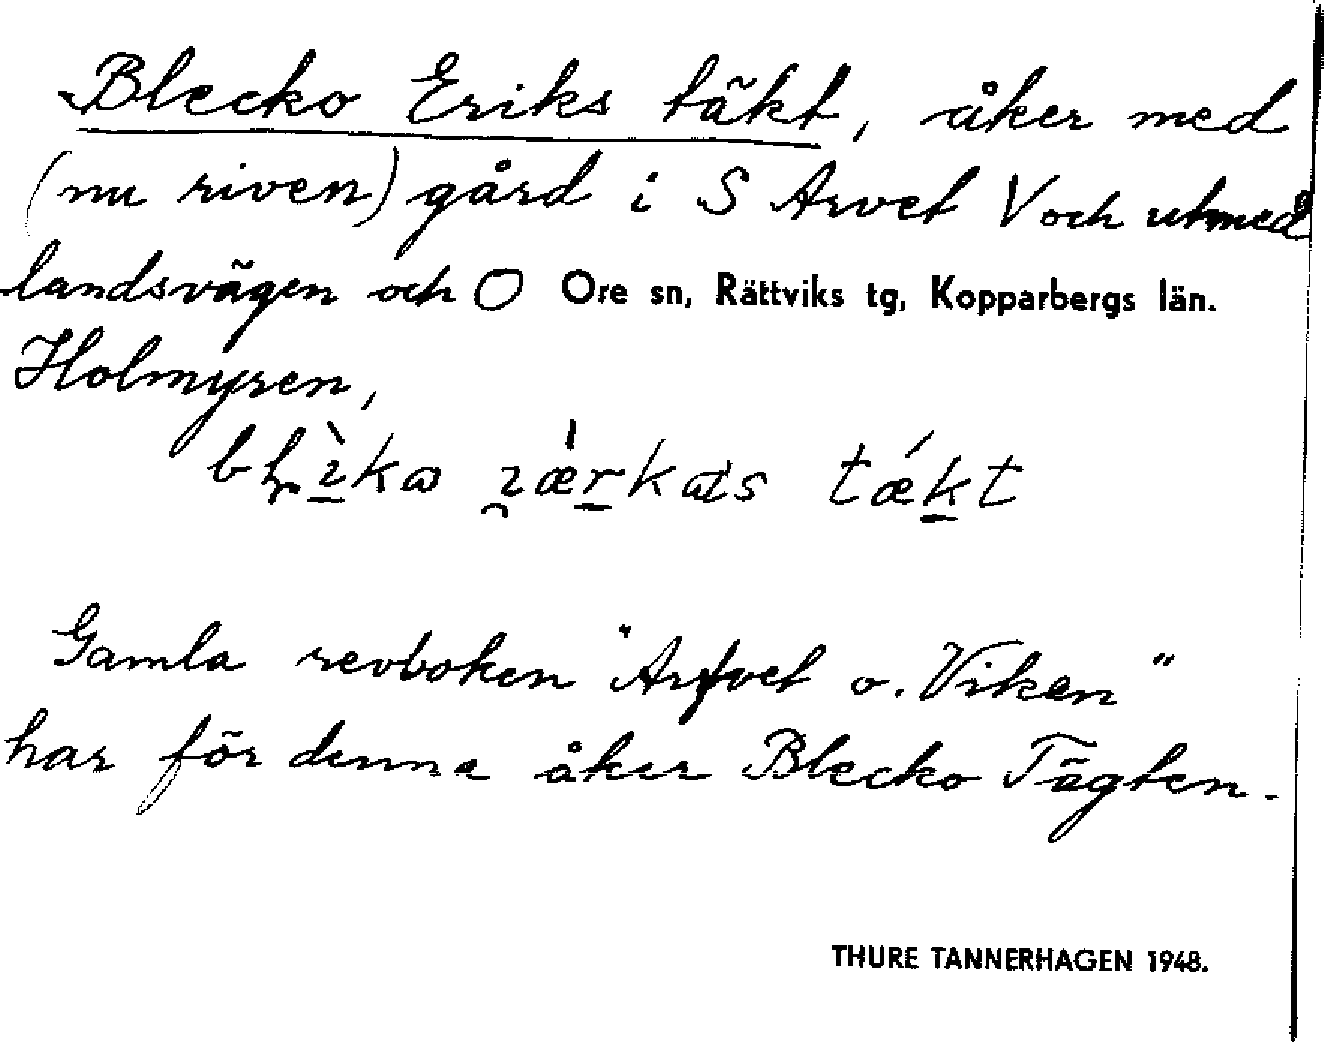 Blecko Eriks täkt, åker med
(nu riven) gård i S Arvet V och utmed
landsvägen och O Ore sn, Rättviks tg, Kopparbergs län.
Holmyren,
Gamla revboken "Arfvet o. Viken"
har för denna åker Blecko Tägten.
THURE TANNERHAGEN 1948.